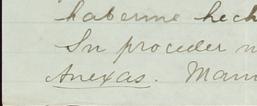 haberme hech
Su proceder n
Anexas. Mam